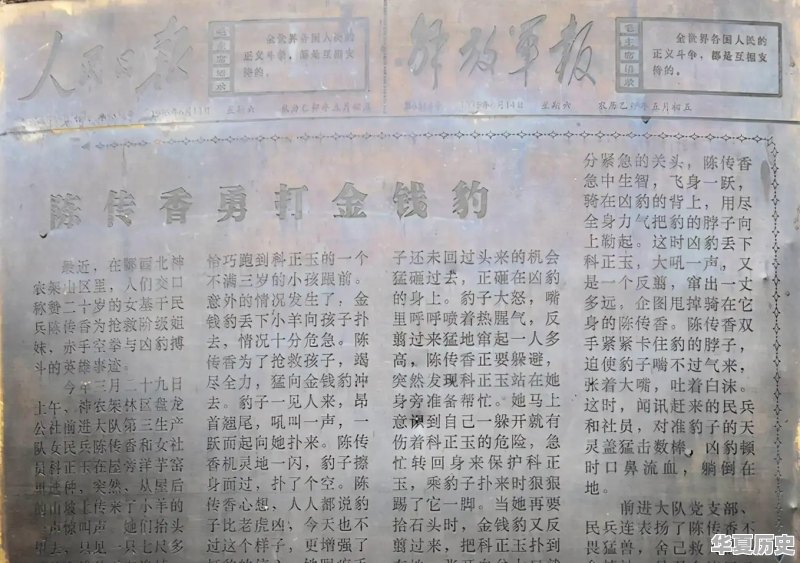 人民日报
毛主席语录
全世界各国人民的
正义斗争，都是互相支
持的。
解放军报
毛主席语录
全世界各国人民的
正义斗争，都是互相支
持的。
星期六
农历乙卯年五月初五
6月14日
星期六
农历乙卯年五月初五
陈传香勇打金钱豹
最近，在鄂西北神
农架山区里，人们交口
称赞二十岁的女基干民
兵陈传香为抢救阶级姐
妹，赤手空拳与凶豹搏
斗的英雄事迹。
今年三月二十九日
上午，神农架林区盘龙
公社前进大队第三生产
队女民兵陈传香和女社
员科正玉在屋旁洋芋窖
选种，突然，从屋后
的山坡上传来了小羊的
声惊叫声。她们抬头
望去，只见一只七尺多
恰巧跑到科正玉的一个
不满三岁的小孩跟前。
意外的情况发生了，金
钱豹丢下小羊向孩子扑
去，情况十分危急。陈
传香为了抢救孩子，竭
尽全力，猛向金钱豹冲
去。豹子一见人来，昂
首翘尾，吼叫一声，一
跃而起向她扑来。陈传
香机灵地一闪，豹子擦
身而过，扑了个空。陈
传香心想，人人都说豹
子比老虎凶，今天也不
过这个样子，更增强了
子还未回过头来的机会
猛砸过去，正砸在凶豹
的身上。豹子大怒，嘴
里呼呼喷着热腥气，反
翦过来猛地窜起一人多
高，陈传香正要躲避，
突然发现科正玉站在她
身旁准备帮忙。她马上
意识到自己一躲开就有
伤着科正玉的危险，急
忙转回身来保护科正
玉，乘豹子扑来时狠狠
踢了它一脚。当她再要
抬石头时，金钱豹又反
翦过来，把科正玉扑到
分紧急的关头，陈传香
急中生智，飞身一跃，
骑在凶豹的背上，用尽
全身力气把豹的脖子向
上勒起。这时凶豹丢下
科正玉，大吼一声，又
是一个反翦，窜出一丈
多远，企图甩掉骑在它
身的陈传香。陈传香双
手紧紧卡住豹的脖子，
迫使豹子喘不过气来，
张着大嘴，吐着白沫。
这时，闻讯赶来的民兵
和社员，对准豹子的天
灵盖猛击数棒，凶豹顿
时口鼻流血，躺倒在
地。
前进大队党支部、
民兵连表扬了陈传香不
畏猛兽，舍己救
华夏历史